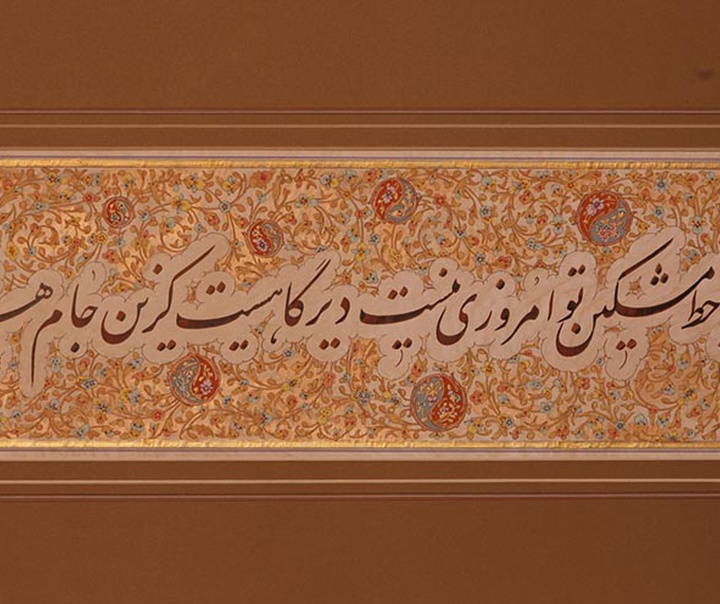 خط مشکین تو امروزی نیست دیرگاهیست کزین جام